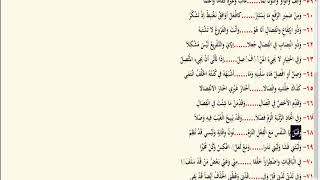 ٥٩- وَأَلِفٌ وَالْوَاوُ وَالنُّونُ لِمَا......غَابَ وَغَيْرِهِ كَقَامَا وَاعْلَمَا
٦٠- وَمِنْ ضَمِيرِ الرَّفْعِ مَا يَسْتَتِرُ......كَافْعَلْ أُوَافِقْ نَغْتَبِطْ إِذْ تَشْكُرُ
٦١- وَذُو ارْتِفَاعٍ وَانْفِصَالٍ أَنَا هُوَ......وَأَنْتَ وَالْفُرُوعُ لَا تَشْتَبِهُ
٦٢- وَذُو انْتِصَابٍ فِي انْفِصَالٍ جُعِلَا......إِيَّايَ وَالتَّفْرِيعُ لَيْسَ مُشْكِلَا
٦٣- وَفِي اخْتِيَارٍ لَا يَجِيءُ الْمُنْفَصِلْ......إِذَا تَأَتَّى أَنْ يَجِيءَ الْمُتَّصِلْ
٦٤- وَصِلْ أَوِ افْصِلْ هَاءَ سَلْنِيهِ وَمَا......أَشْبَهَهُ فِي كُنْتُهُ الْخُلْفُ انْتَمَى
٦٥- كَذَاكَ خِلْتَنِيهِ وَاتِّصَالَا......أَخْتَارُ غَيْرِي اخْتَارَ الِانْفِصَالَا
٦٦- وَقَدِّمِ الْأَخَصَّ فِي اتِّصَالِ......وَقَدِّمَنْ مَا شِئْتَ فِي انْفِصَالِ
٦٧- وَفِي اتِّحَادِ الرُّتْبَةِ الْزَمْ فَصْلَا......وَقَدْ يُبِيحُ الْغَيْبُ فِيهِ وَصْلَا
٦٨- وَقَبْلَ يَا النَّفْسِ مَعَ الْفِعْلِ الْتُزِمْ......نُونُ وِقَايَةٍ وَلَيْسِي قَدْ نُظِمْ
٦٩- وَلَيْتَنِي فَشَا وَلَيْتِي نَدَرَا......وَمَعْ لَعَلَّ اعْكِسْ وَكُنْ مُخَيَّرَا
٧٠- فِي الْبَاقِيَاتِ وَاضْطِرَارًا خَفَّفَا......مِنِّي وَعَنِّي بَعْضُ مَنْ قَدْ سَلَفَا
٧١- وَفِي لَدُنِّي لَدُنِي قَلَّ وَفِي......قَدْنِي وَقَطْنِي الْحَذْفُ أَيْضًا قَدْ يَفِي